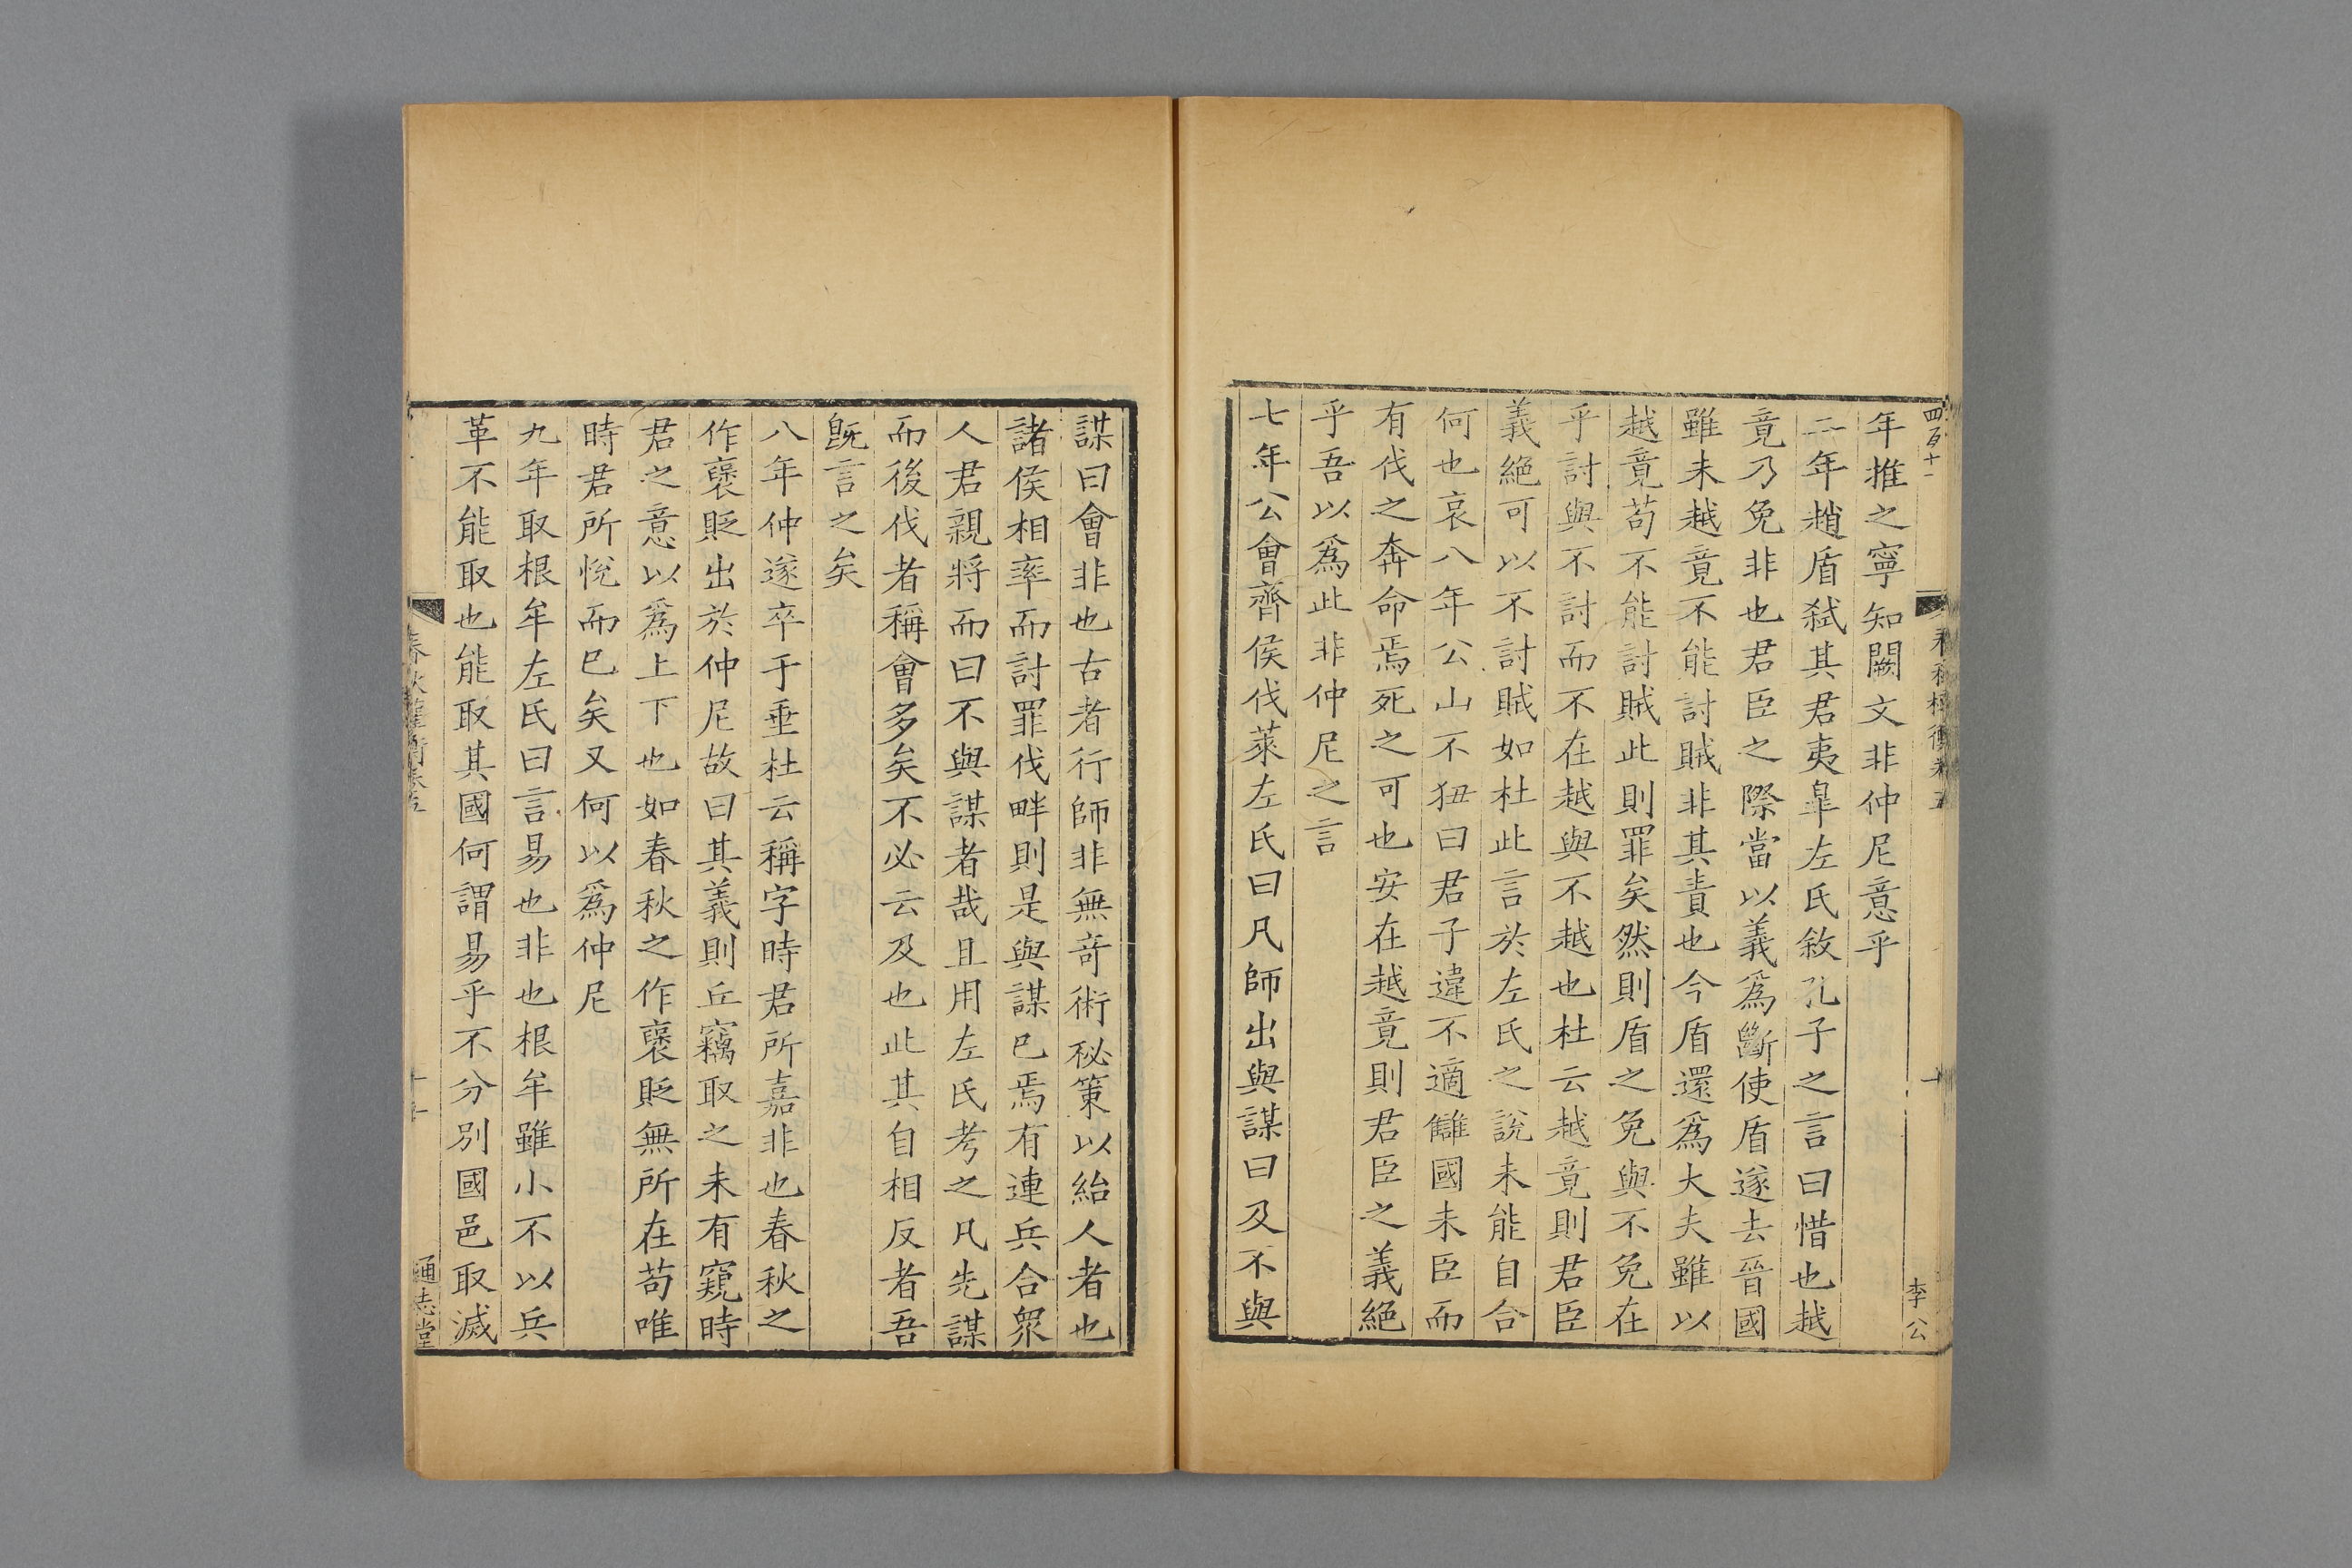 四百十一
春秋權衡卷五
十
李公
年推之寧知闕文非仲尼意乎
二年趙盾弑其君夷皐左氏敘孔子之言曰惜也越
竟乃免非也君臣之際當以義爲斷使盾遂去晉國
雖未越竟不能討賊非其責也今盾還爲大夫雖以
越竟苟不能討賊此則罪矣然則盾之免與不免在
乎討與不討而不在越與不越也杜云越竟則君臣
義絕可以不討賊如杜此言於左氏之說未能自合
何也哀八年公山不狃曰君子違不適讎國未臣而
有伐之奔命焉死之可也安在越竟則君臣之義絕
乎吾以爲此非仲尼之言
七年公會齊侯伐萊左氏曰凡師出與謀曰及不與
謀曰會非也古者行師非無竒術祕策以紿人者也
諸侯相率而討罪伐畔則是與謀已焉有連兵合眾
人君親將而曰不與謀者哉且用左氏考之凡先謀
而後伐者稱會多矣不必云及也此其自相反者吾
旣言之矣
八年仲遂卒于垂杜云稱字時君所嘉非也春秋之
作襃貶出於仲尼故曰其義則丘竊取之未有窺時
君之意以爲上下也如春秋之作襃貶無所在苟唯
時君所悅而已矣又何以爲仲尼
九年取根牟左氏曰言易也非也根牟雖小不以兵
革不能取也能取其國何謂易乎不分別國邑取滅
春秋權衡卷五
十一
通志堂